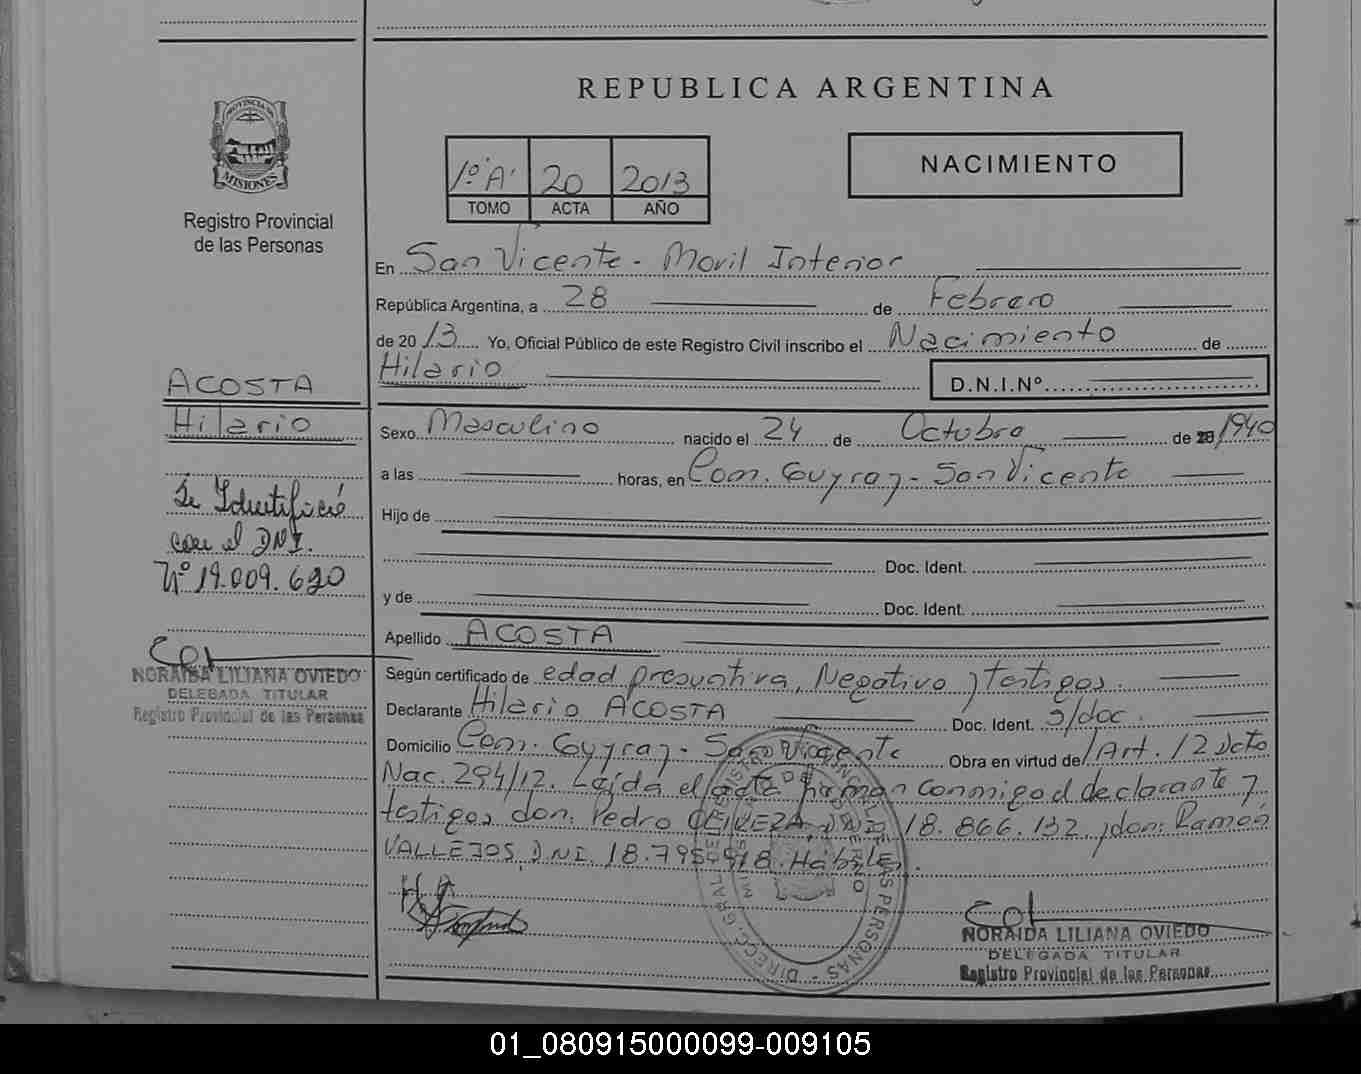 REPUBLICA ARGENTINA
PROVINCIA DE MISIONES
Registro Provincial
de las Personas
1º "A" 20 2013
TOMO ACTA AÑO
NACIMIENTO
En San Vicente - Movil Interior
República Argentina, a 28 de Febrero
de 2013 Yo, Oficial Público de este Registro Civil inscribo el Nacimiento de
Hilario
D.N.I.Nº
ACOSTA
Hilario
Se Identificó
con el DNI.
Nº 19.009.620
NORAIDA LILIANA OVIEDO
DELEGADA TITULAR
Registro Provincial de las Personas
Sexo Masculino nacido el 24 de Octubre de 1940
a las horas, en Com. Guyray - San Vicente
Hijo de
Doc. Ident.
y de Doc. Ident.
Apellido ACOSTA
Según certificado de edad presuntiva, Negativo y testigos.
Declarante Hilario ACOSTA Doc. Ident. s/doc.
Domicilio Com. Guyray - San Vicente Obra en virtud de Art. 12 Dcto
Nac. 294/12. Leída el acta firman conmigo el declarante y
testigos don: Pedro DNI 18.866.132 y don: Ramón
VALLEJOS DNI. Habiles.
NORAIDA LILIANA OVIEDO
DELEGADA TITULAR
Registro Provincial de las Personas
01_080915000099-009105